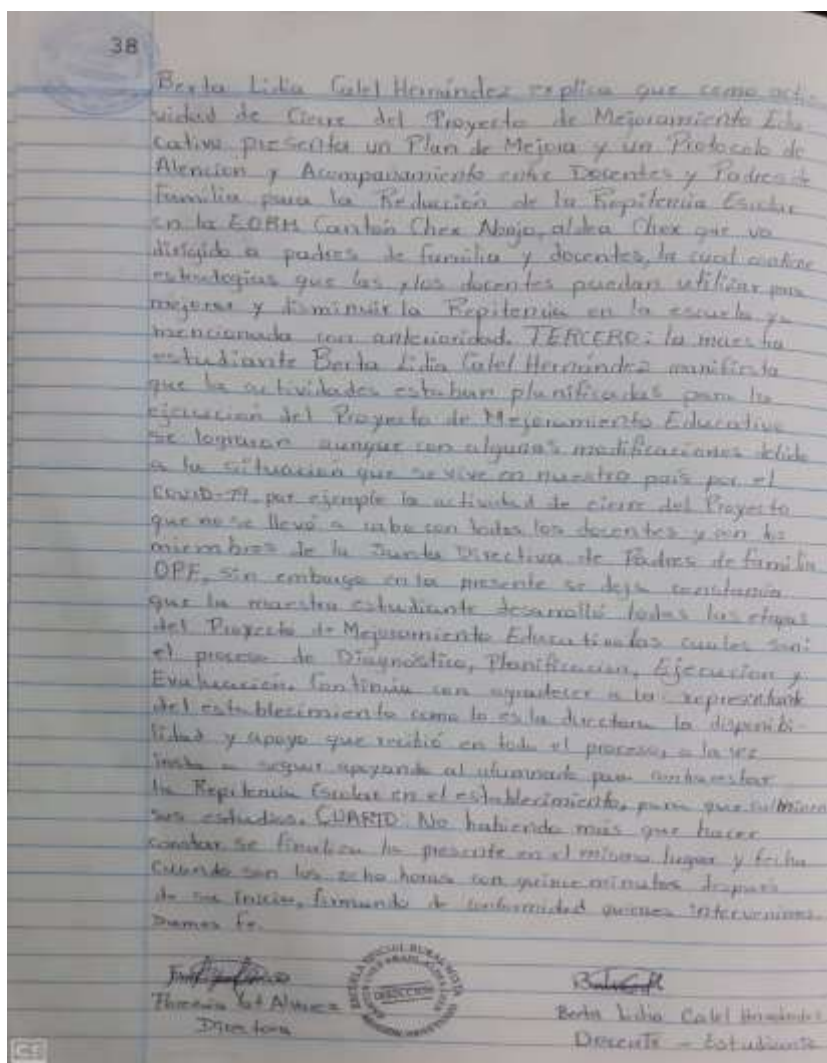 38
Berta Lidia Calel Hernández explica que como acti-
vidad de Cierre del Proyecto de Mejoramiento Edu
cativo presenta un Plan de Mejora y un Protocolo de
Atencion y Acompañamiento entre Docentes y Padres de
Familia para la Reducción de la Repitencia Escolar
en la EORM Cantón Chex Abajo, aldea Chex que va
dirigido a padres de familia y docentes, la cual contiene
estrategias que las y los docentes puedan utilizar para
mejorar y disminuir la Repitencia en la escuela ya
mencionada con anterioridad. TERCERO: la maestra
estudiante Berta Lidia Calel Hernández manifiesta
que la actividades estaban planificadas para la
ejecución del Proyecto de Mejoramiento Educativo
se lograron aunque con algunas modificaciones debido
a la situacion que se vive en nuestro país por el
COVID-19, por ejemplo la actividad de cierre del Proyecto
que no se llevó a cabo con todos los docentes y con los
miembros de la Junta Directiva de Padres de familia
OPF, sin embargo en la presente se deja constancia
que la maestra estudiante desarrolló todas las etapas
del Proyecto de Mejoramiento Educativo las cuales son:
el proceso de Diagnóstico, Planificacion, Ejecucion y
Evaluación. Continúa con agradecer a la representante
del establecimiento como lo es la directora la disponibi-
lidad y apoyo que recibió en todo el proceso, a la vez
insta a seguir apoyando al alumnado para contrarrestar
la Repitencia Escolar en el establecimiento, para que culminen
sus estudios. CUARTO: No habiendo más que hacer
constar se finaliza la presente en el mismo lugar y fecha
cuando son las ocho horas con quince minutos después
de su inicio, firmando de conformidad quienes intervenimos.
Damos fe.
ESCUELA OFICIAL RURAL MIXTA
DIRECCION
Alvarez
Directora
Berta Lidia Calel Hernández
Docente - Estudiante
CS